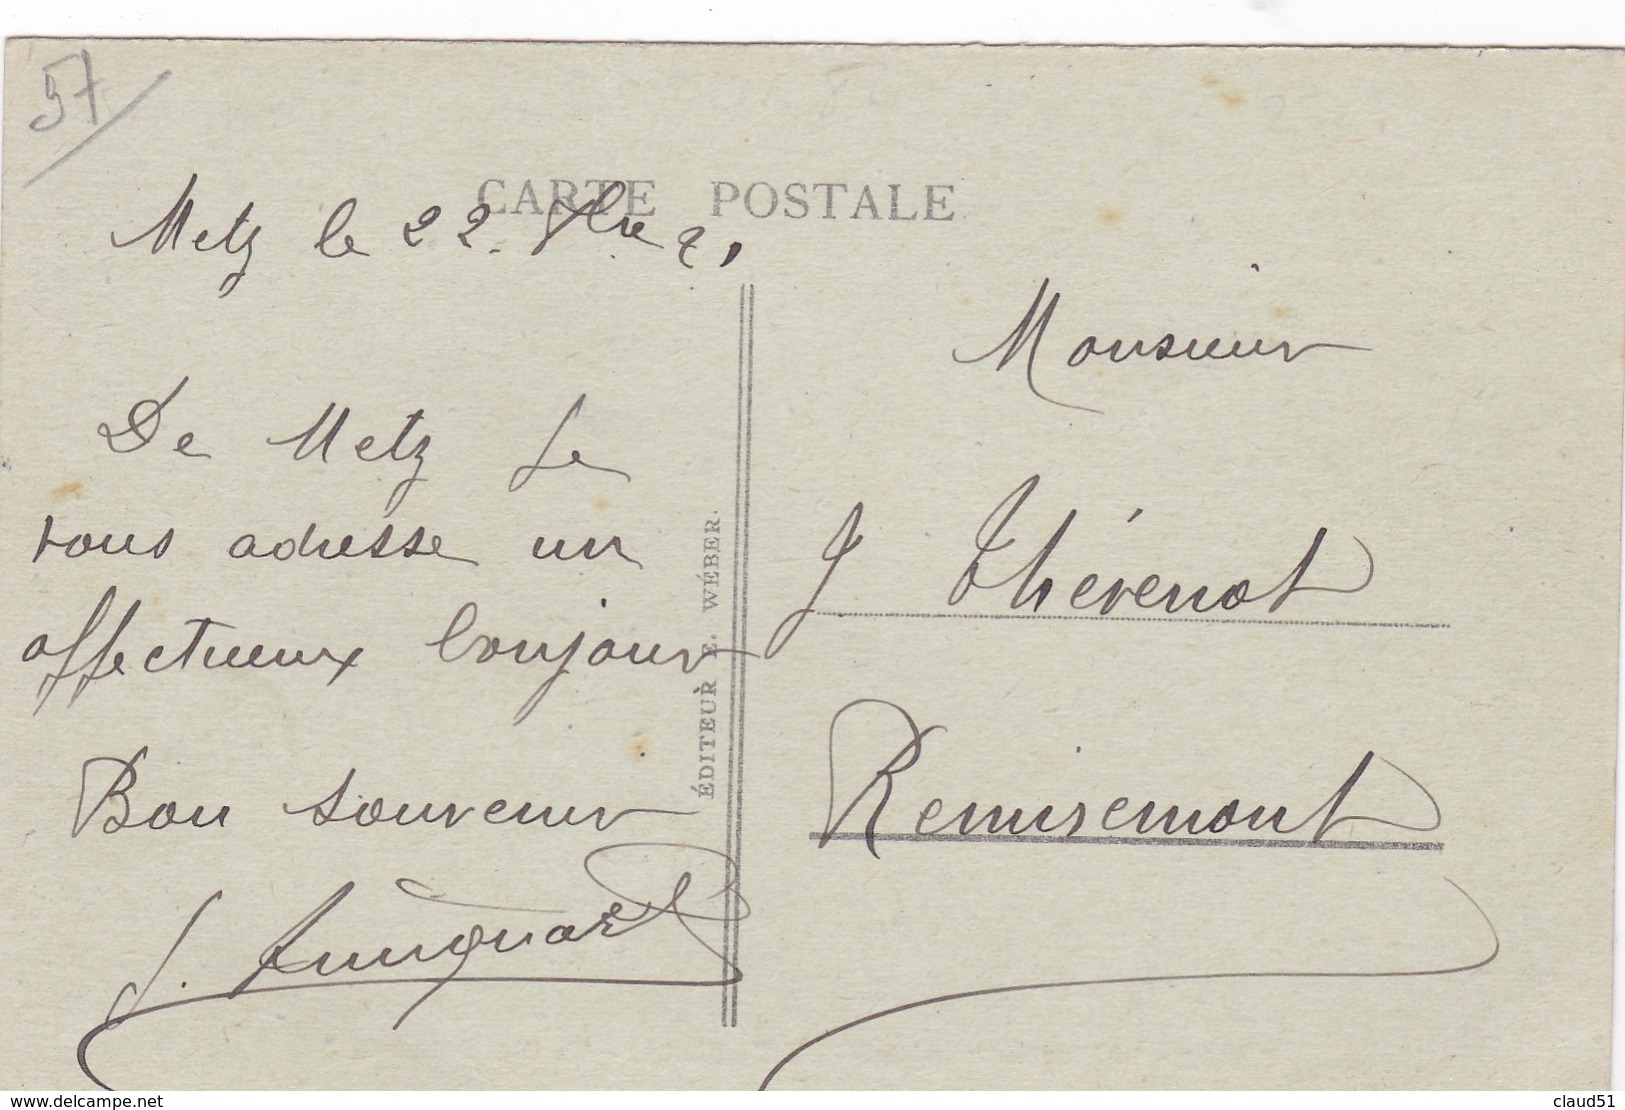 57
CARTE POSTALE
Metz le 22
De Metz je
vous adresse un
affectueux bonjour
Bon souvenir
J.
ÉDITEUR E. WÉBER.
Monsieur
J Thévenot
Remiremont
www.delcampe.net
claud51